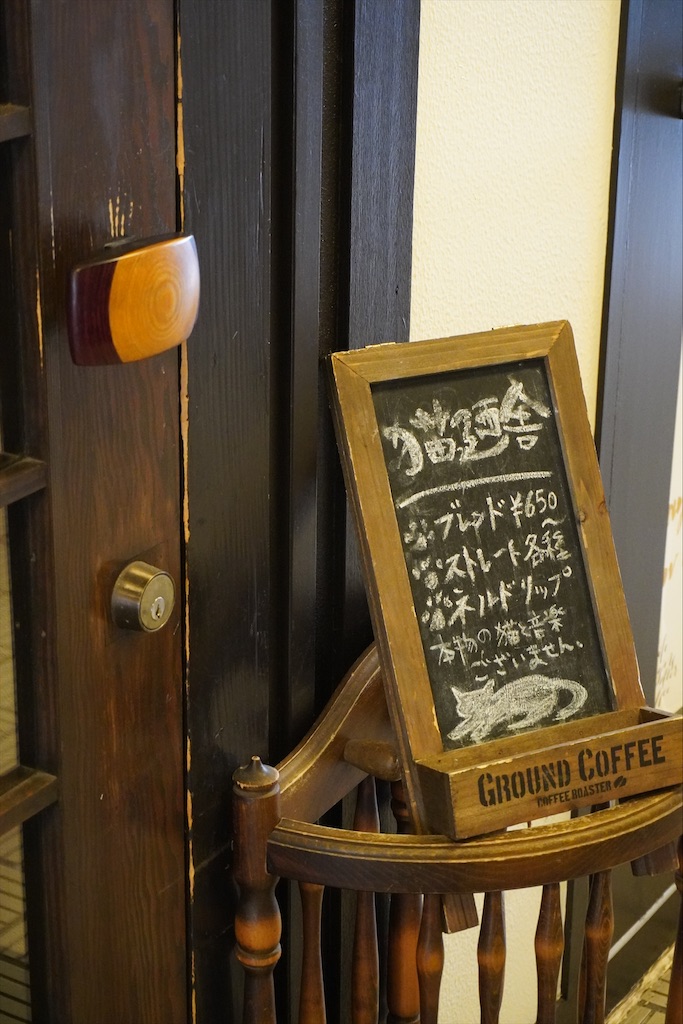 猫廼舎
ブレンド ¥650~
ストレート各種
ネルドリップ
本物の猫と音楽
ございません。
GROUND COFFEE
COFFEE ROASTER